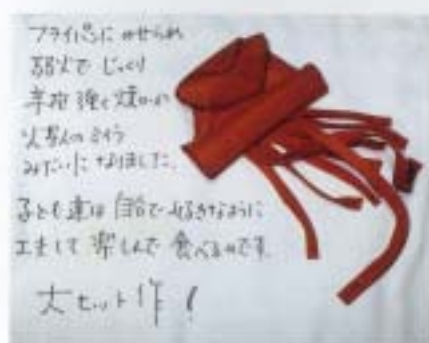 フライパンにのせられ
弱火で じっくり
辛抱強く焼かれ
みたいになりました。
子ども達は自分で好きなように
工夫して 楽しんで 食べるのです。
大ヒット作!